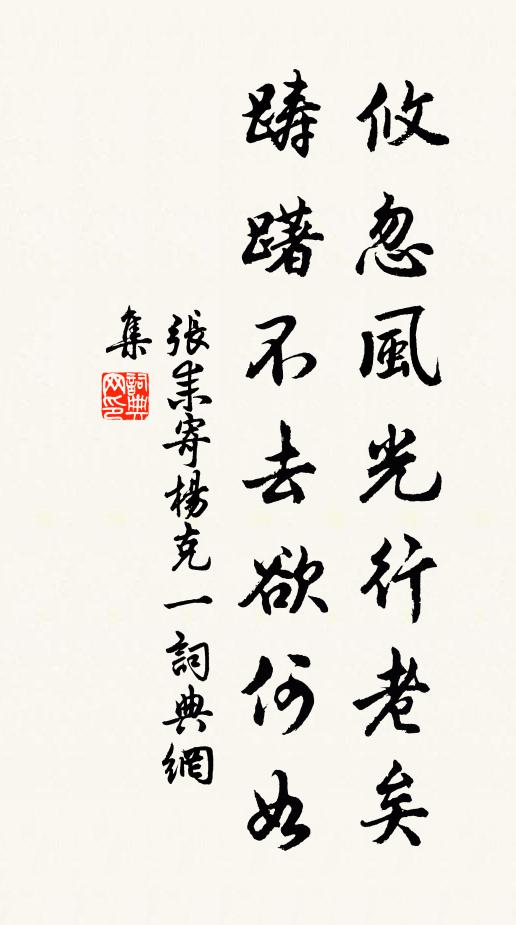 攸忽風光行老矣
躊躇不去欲何如
張耒寄楊克一詞典網
集
詞典
网印